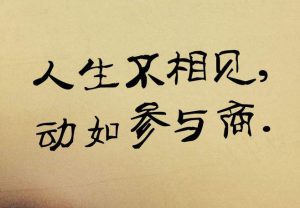 人生不相见，
动如参与商.